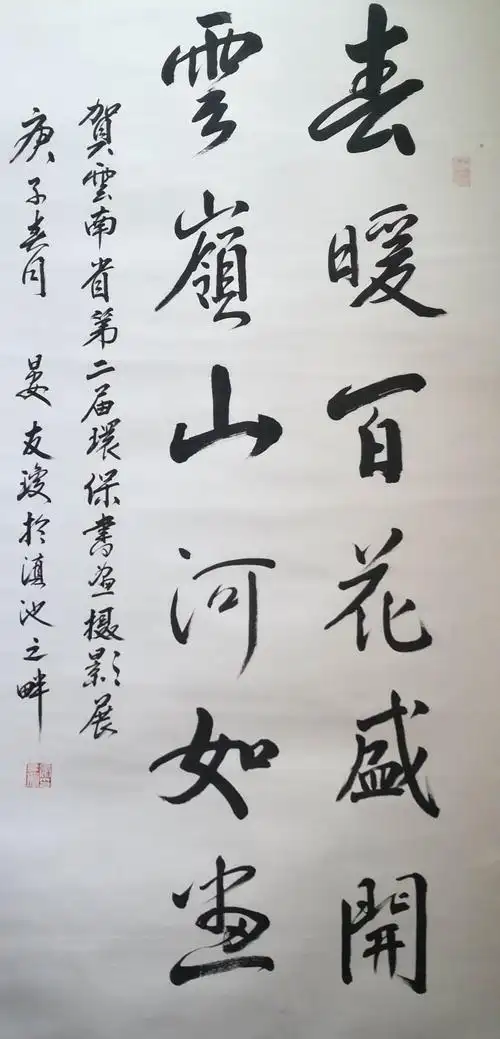 春暖百花盛開
雲嶺山河如畫
賀雲南省第二届環保書画摄影展
庚子春月 晏友瓊於滇池之畔